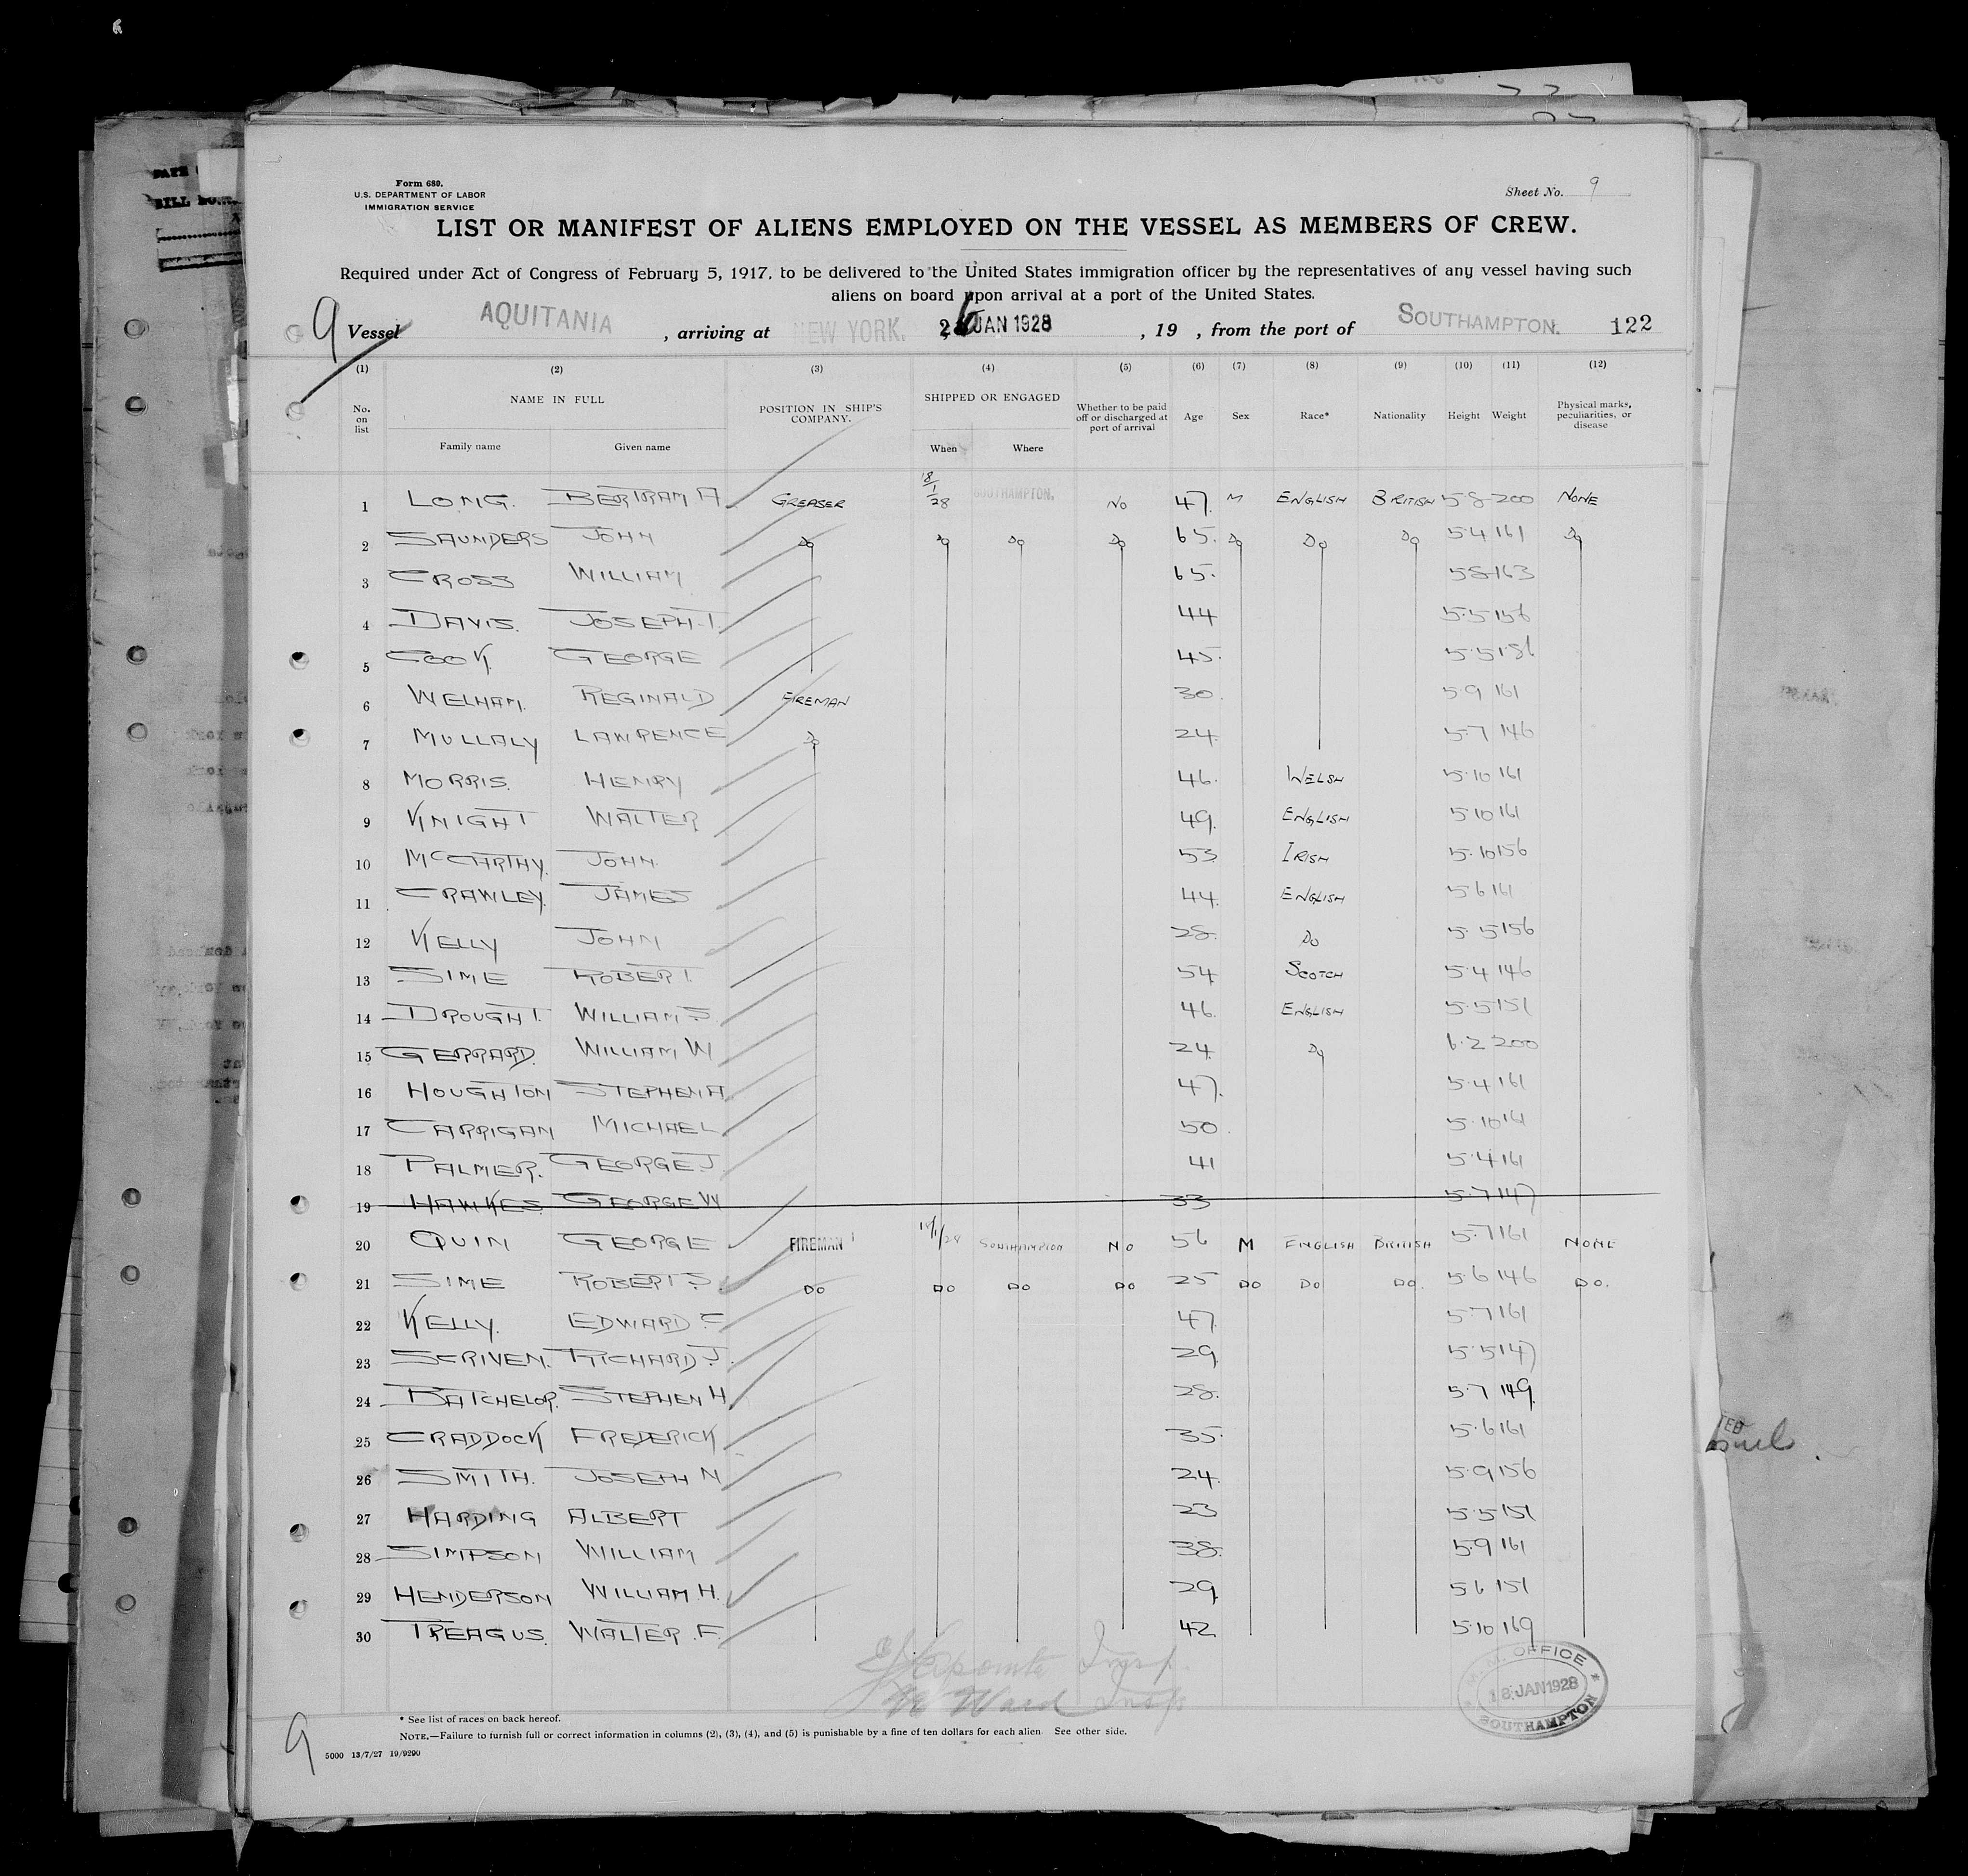 Form 680.
U.S. DEPARTMENT OF LABOR
IMMIGRATION SERVICE
Sheet No. 9
LIST OR MANIFEST OF ALIENS EMPLOYED ON THE VESSEL AS MEMBERS OF CREW.
Required under Act of Congress of February 5, 1917, to be delivered to the United States immigration officer by the representatives of any vessel having such
aliens on board upon arrival at a port of the United States.
9 Vessel AQUITANIA, arriving at NEW YORK. 26 JAN 1928, 19 , from the port of SOUTHAMPTON. 122
(1) (2) (3) (4) (5) (6) (7) (8) (9) (10) (11) (12)
No. on list NAME IN FULL POSITION IN SHIP'S COMPANY. SHIPPED OR ENGAGED Whether to be paid off or discharged at port of arrival Age Sex Race* Nationality Height Weight Physical marks, peculiarities, or disease
Family name Given name When Where
1 LONG. BERTRAM A GREASER 18/1/28 SOUTHAMPTON. NO 47. M ENGLISH BRITISH 5-8 200 NONE
2 SAUNDERS JOHN DO DO DO DO 65. DO DO DO 5.4 161 DO
3 CROSS WILLIAM 65. 5.8 163
4 DAVIS. JOSEPH.T. 44 5.5 156
5 COOK. GEORGE 45. 5.5 186
6 WELHAM. REGINALD FIREMAN 30. 5.9 161
7 MULLALY LAWRENCE DO 24. 5.7 146
8 MORRIS. HENRY 46. WELSH 5.10 161
9 KNIGHT WALTER 49. ENGLISH 5.10 161
10 McCARTHY. JOHN. 53 IRISH 5.10 156
11 CRAWLEY. JAMES 44. ENGLISH 5.6 161
12 KELLY JOHN 28. DO 5.5 156
13 SIME ROBERT. 54 SCOTCH 5.4 146
14 DROUGHT. WILLIAM S. 46. ENGLISH 5.5 151
15 GERRARD. WILLIAM W 24 DO 6.2 200
16 HOUGHTON STEPHEN A 47. 5.4 161
17 CARRIGAN MICHAEL 50. 5.10 161
18 PALMER. GEORGE.J. 41 5.4 161
19 HAWKES. GEORGE W 33 5.7 147
20 QUIN GEORGE FIREMAN 18/1/28 SOUTHAMPTON NO 56 M ENGLISH BRITISH 5.7 161 NONE
21 SIME ROBERT S. DO DO DO DO 25 DO DO DO. 5.6 146 DO.
22 KELLY. EDWARD F 47. 5.7 161
23 SCRIVEN. RICHARD J. 29. 5.5 147
24 BATCHELOR. STEPHEN H. 28. 5.7 149.
25 CRADDOCK FREDERICK 35. 5.6 161
26 SMITH. JOSEPH N 24. 5.9 156
27 HARDING ALBERT 23 5.5 151
28 SIMPSON WILLIAM 38. 5.9 161
29 HENDERSON WILLIAM.H. 29 5.6 151
30 TREAGUS. WALTER.F. 42 5.10 169
Insp.
Ward Insp
OFFICE
18 JAN 1928
SOUTHAMPTON
* See list of races on back hereof.
NOTE.—Failure to furnish full or correct information in columns (2), (3), (4), and (5) is punishable by a fine of ten dollars for each alien. See other side.
9 5000 13/7/27 19/9290